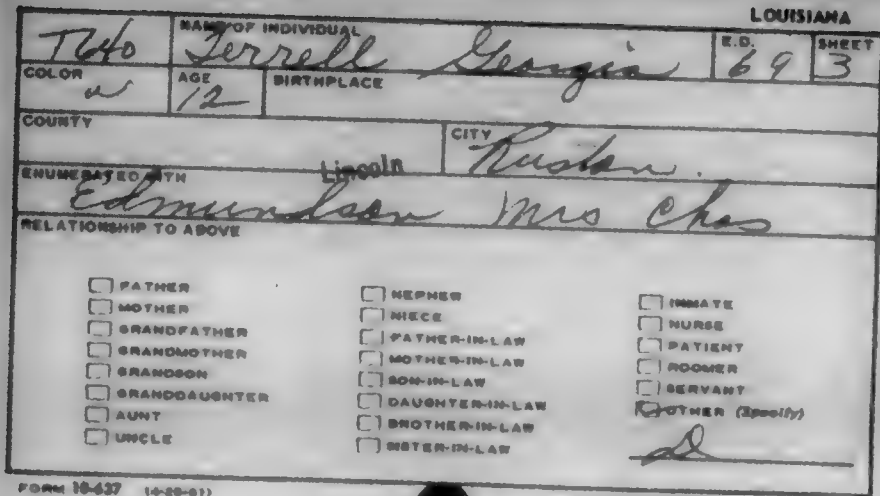 LOUISIANA
NAME OF INDIVIDUAL E.D. SHEET
T640 Terrell Georgia 69 3
COLOR AGE BIRTHPLACE
w 12
COUNTY CITY
Lincoln Ruston.
ENUMERATED WITH
Edmundson Mrs Chas
RELATIONSHIP TO ABOVE
FATHER
MOTHER
GRANDFATHER
GRANDMOTHER
GRANDSON
GRANDDAUGHTER
AUNT
UNCLE
NEPHEW
NIECE
FATHER-IN-LAW
MOTHER-IN-LAW
SON-IN-LAW
DAUGHTER-IN-LAW
BROTHER-IN-LAW
SISTER-IN-LAW
INMATE
NURSE
PATIENT
ROOMER
SERVANT
OTHER (Specify)
D
FORM 10-637